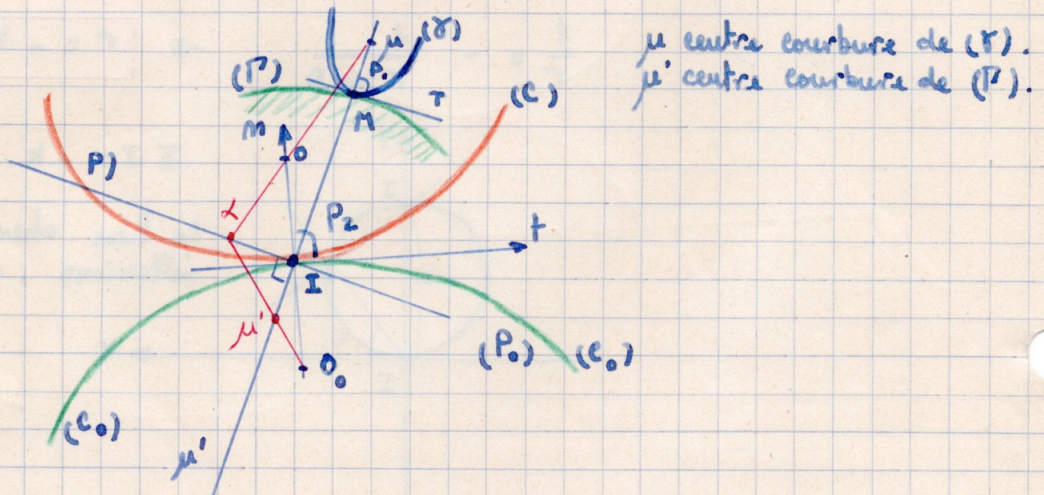 μ centre courbure de (γ).
μ' centre courbure de (Γ).
μ
(γ)
(Γ)
T
M
(C)
n
O
P)
α
t
I
μ'
O₀
(P₀)
(C₀)
(C₀)
μ'